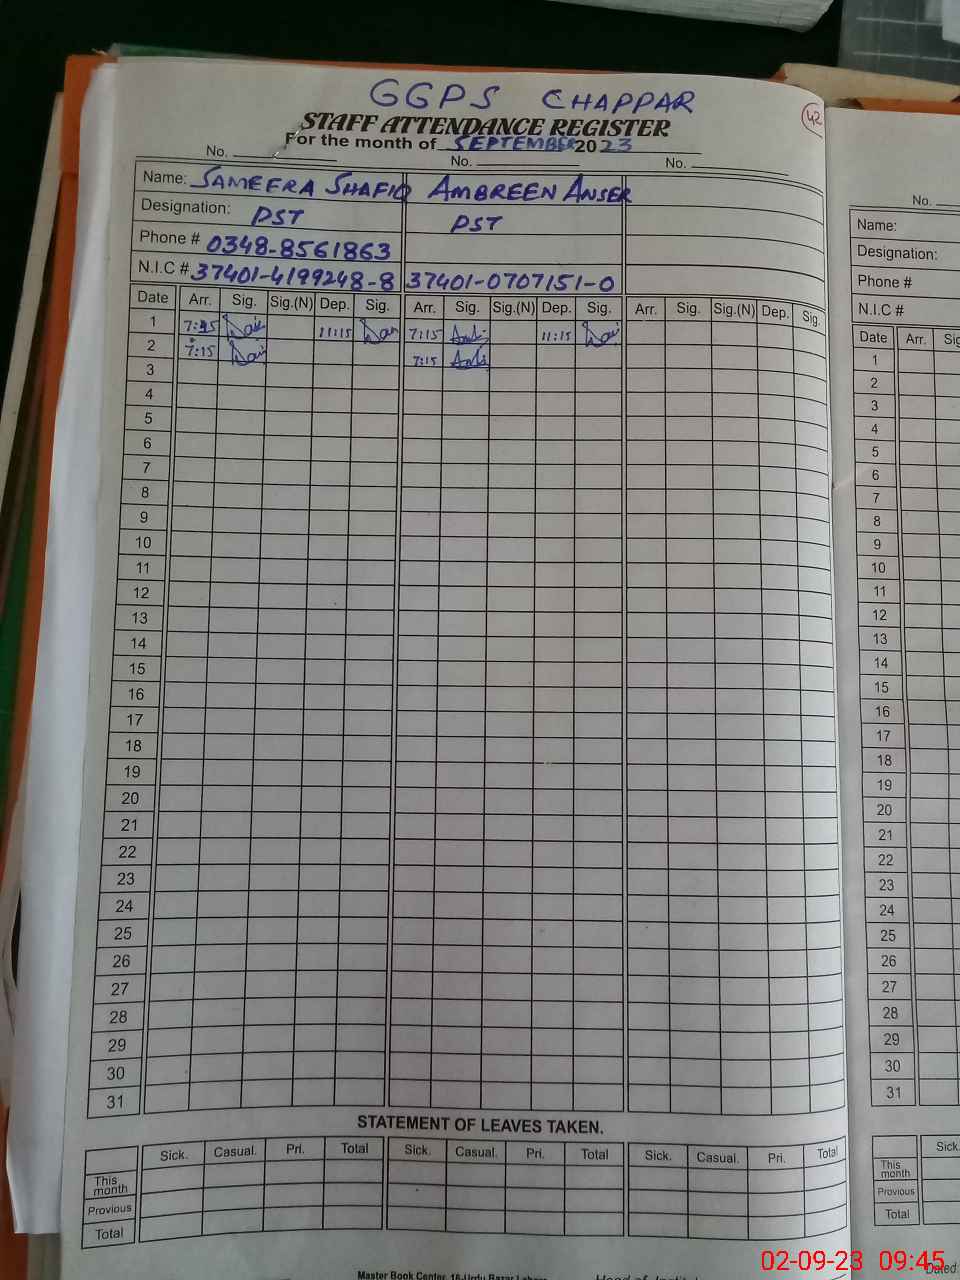 GGPS CHAPPAR
42
STAFF ATTENDANCE REGISTER
For the month of SEPTEMBER 2023
No. No. No.
Name: SAMEERA SHAFIQ AMBREEN ANSER
Designation: PST PST
Phone # 0348-8561863
N.I.C # 37401-4199248-8 37401-0707151-0
Date Arr. Sig. Sig.(N) Dep. Sig. Arr. Sig. Sig.(N) Dep. Sig. Arr. Sig. Sig.(N) Dep. Sig.
1 11:15 7:15 11:15
2 7:15 7:15
3
4
5
6
7
8
9
10
11
12
13
14
15
16
17
18
19
20
21
22
23
24
25
26
27
28
29
30
31
STATEMENT OF LEAVES TAKEN.
Sick. Casual. Pri. Total Sick. Casual. Pri. Total Sick. Casual. Pri. Total
This month
Provious
Total
Master Book Center, 16-Urdu Bazar
No.
Name:
Designation:
Phone #
N.I.C #
Date Arr.
1
2
3
4
5
6
7
8
9
10
11
12
13
14
15
16
17
18
19
20
21
22
23
24
25
26
27
28
29
30
31
Sick.
This month
Provious
Total
Dated
02-09-23 09:45